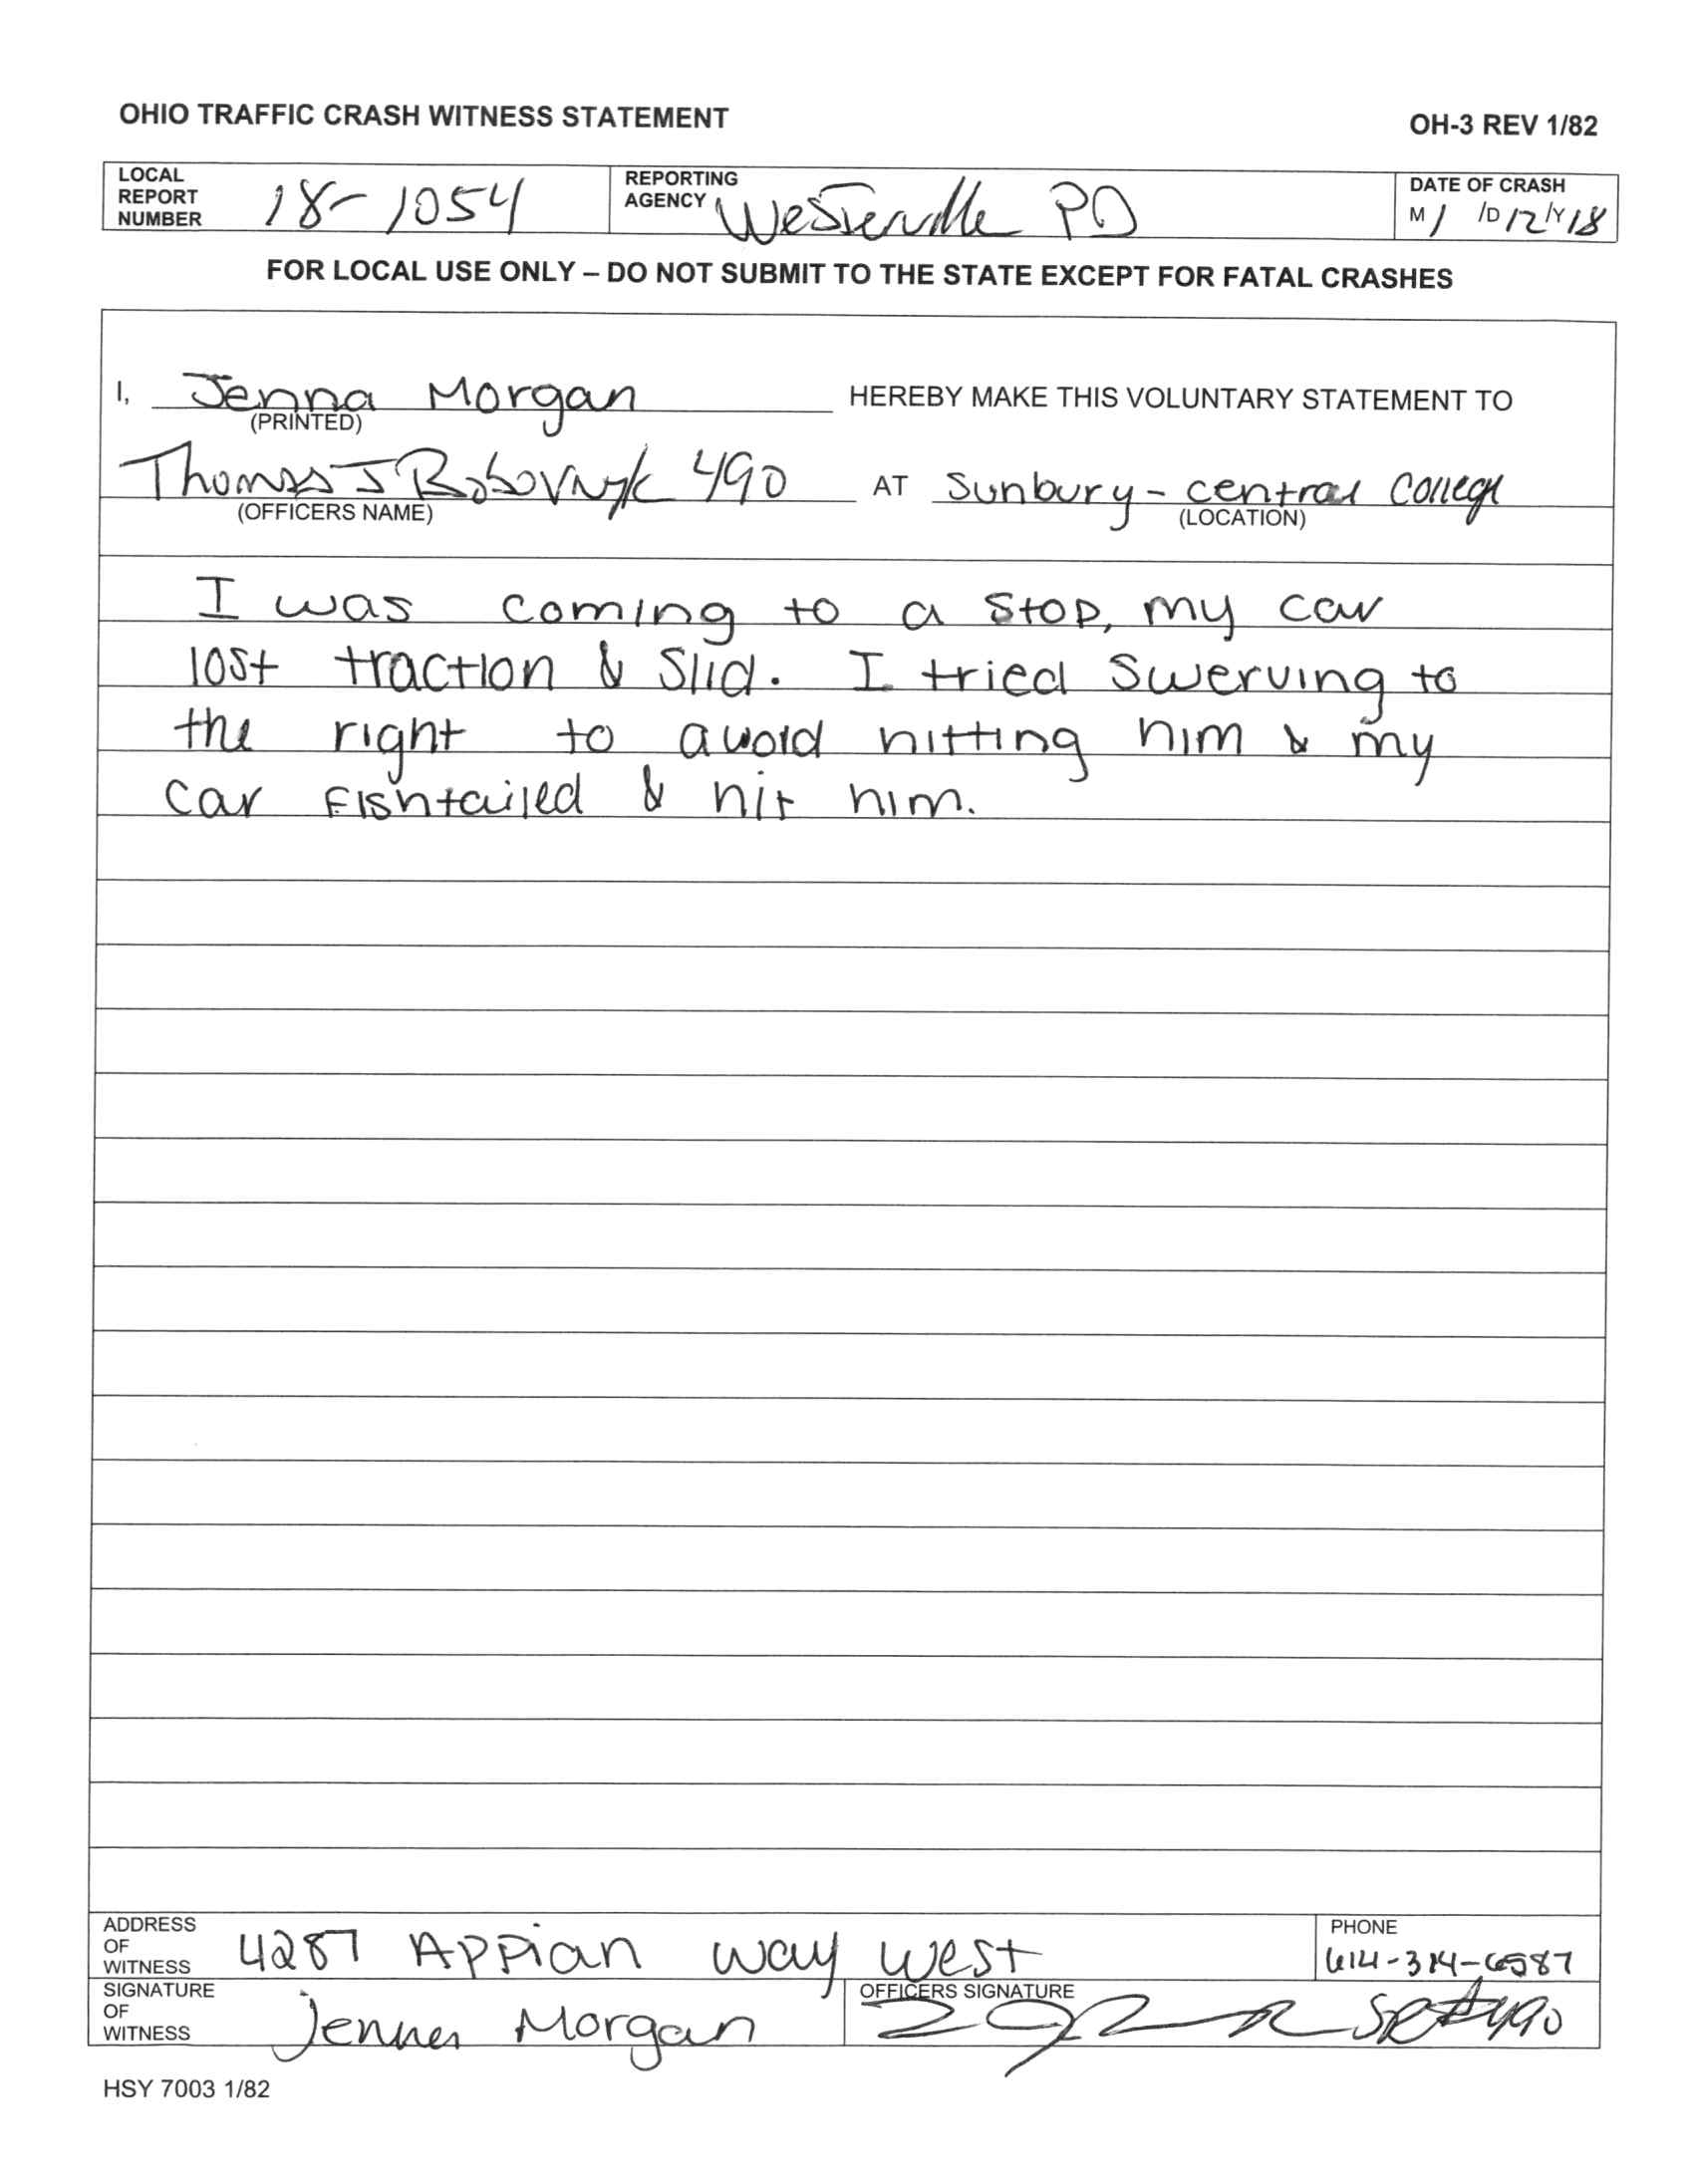 OHIO TRAFFIC CRASH WITNESS STATEMENT OH-3 REV 1/82
LOCAL REPORT NUMBER 18-1054 REPORTING AGENCY Westerville PD DATE OF CRASH M 1 /D 12 /Y 18
FOR LOCAL USE ONLY – DO NOT SUBMIT TO THE STATE EXCEPT FOR FATAL CRASHES
I, Jenna Morgan HEREBY MAKE THIS VOLUNTARY STATEMENT TO
(PRINTED)
Thomas J 490 AT Sunbury - central College
(OFFICERS NAME) (LOCATION)
I was coming to a stop, my car
lost traction & slid. I tried swerving to
the right to avoid hitting him & my
car fishtailed & hit him.
ADDRESS OF WITNESS 4287 Appian way west PHONE 614-314-6587
SIGNATURE OF WITNESS Jenna Morgan OFFICERS SIGNATURE #490
HSY 7003 1/82